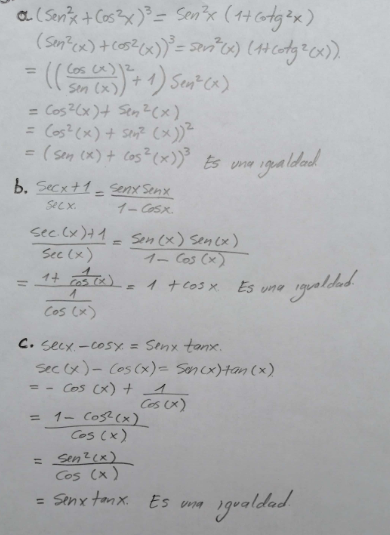 a. (Sen²x + Cos²x)³ = Sen²x (1+Cotg²x)
(Sen²(x) + Cos²(x))³ = Sen²(x) (1+Cotg²(x)).
= ((Cos(x)/Sen(x))² + 1) Sen²(x)
= Cos²(x) + Sen²(x)
= (Cos²(x) + Sen²(x))²
= (Sen(x) + Cos²(x))³ Es una igualdad.
b. Secx+1/Secx = Senx Senx/1-Cosx.
Sec(x)+1/Sec(x) = Sen(x) Sen(x)/1-Cos(x)
= 1+1/Cos(x)/1/Cos(x) = 1 + Cosx Es una igualdad.
c. Secx - Cosx = Senx tanx.
Sec(x) - Cos(x) = Sen(x) tan(x)
= - Cos(x) + 1/Cos(x)
= 1-Cos²(x)/Cos(x)
= Sen²(x)/Cos(x)
= Senx tanx. Es una igualdad.